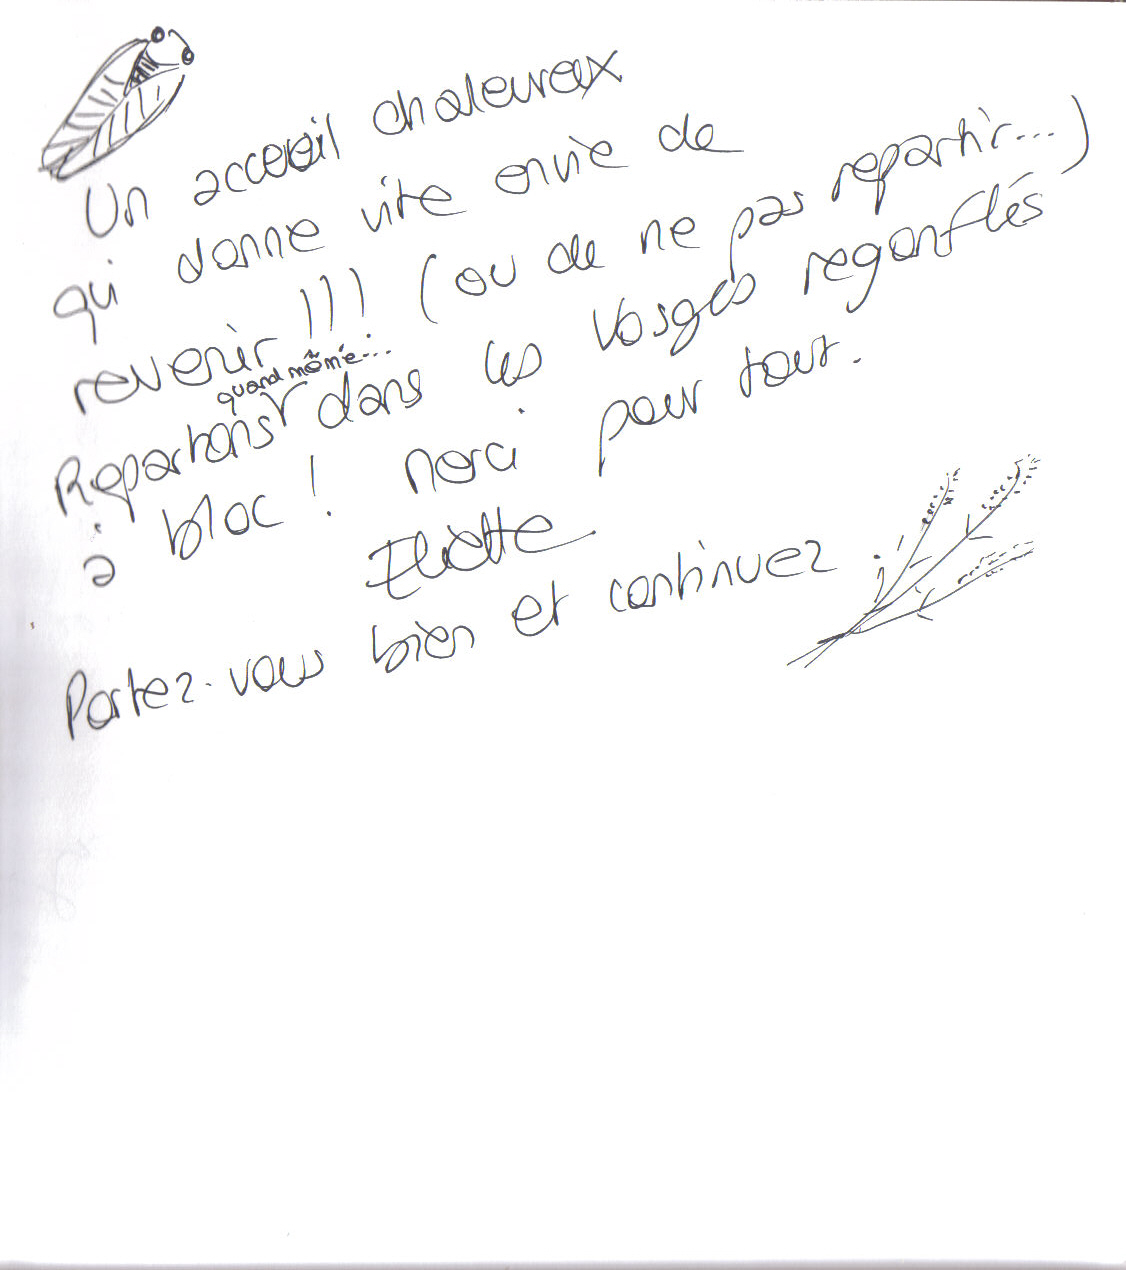 Un accueil chaleureux
qui donne vite envie de
revenir !!! (ou de ne pas repartir...)
quand même...
Repartons dans les Vosges regonflés
à bloc ! Merci pour tout.
Portez-vous bien et continuez !